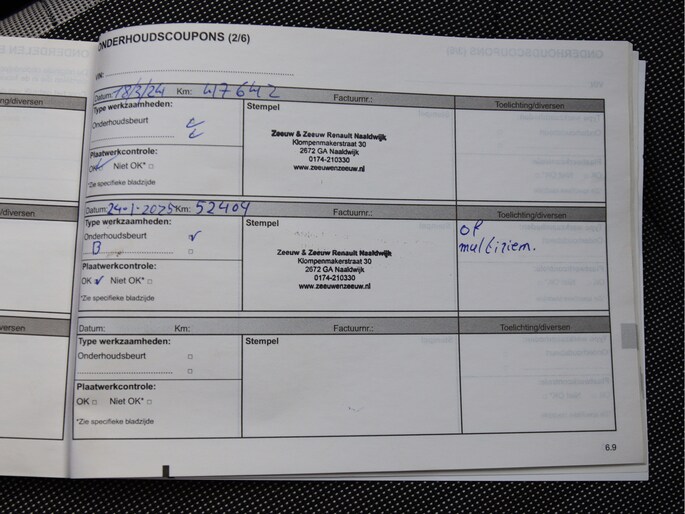 ONDERHOUDSCOUPONS (2/6)
VIN:
Datum: 18/3/24 Km: 47642 Factuurnr.: Toelichting/diversen
Type werkzaamheden:
Onderhoudsbeurt
Plaatwerkcontrole:
OK Niet OK*
*Zie specifieke bladzijde
Stempel
Zeeuw & Zeeuw Renault Naaldwijk
Klompenmakerstraat 30
2672 GA Naaldwijk
0174-210330
www.zeeuwenzeeuw.nl
Datum: 24-1-2025 Km: 52404 Factuurnr.: Toelichting/diversen
Type werkzaamheden:
Onderhoudsbeurt
B
Plaatwerkcontrole:
OK Niet OK*
*Zie specifieke bladzijde
Stempel
Zeeuw & Zeeuw Renault Naaldwijk
Klompenmakerstraat 30
2672 GA Naaldwijk
0174-210330
www.zeeuwenzeeuw.nl
multiriem.
Datum: Km: Factuurnr.: Toelichting/diversen
Type werkzaamheden:
Onderhoudsbeurt
Plaatwerkcontrole:
OK Niet OK*
*Zie specifieke bladzijde
Stempel
6.9